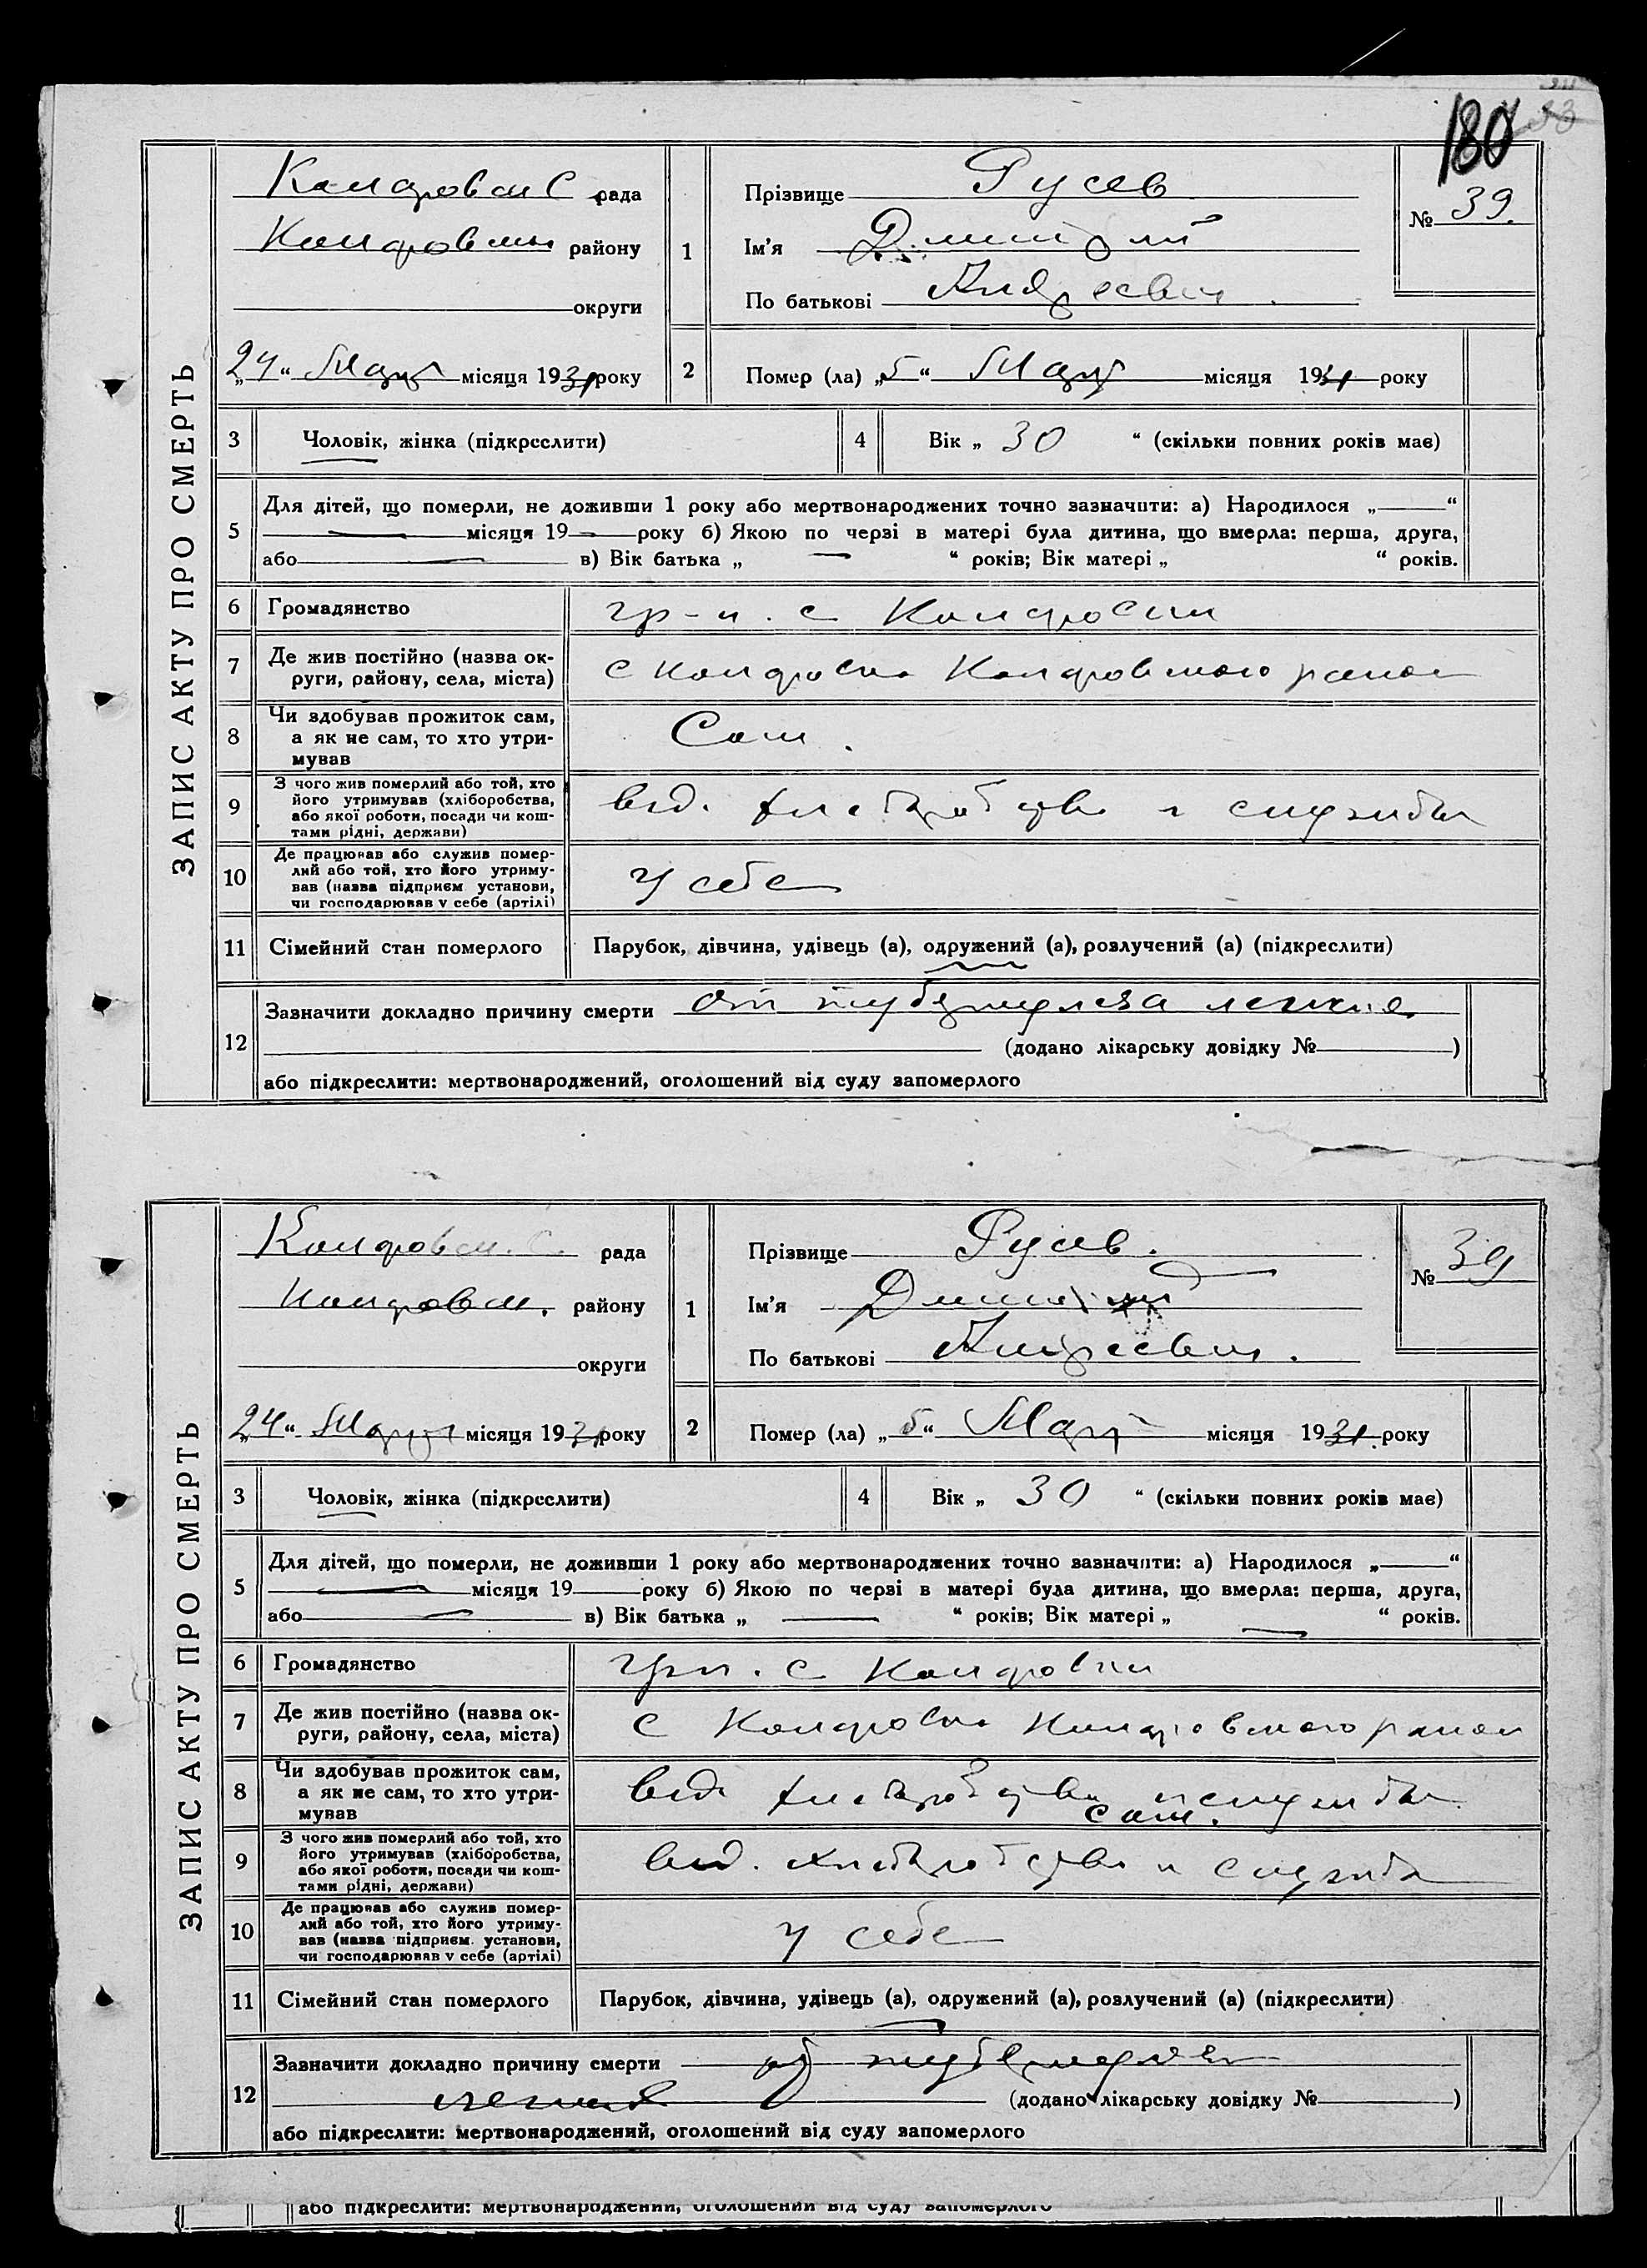 180
39.
ЗАПИС АКТУ ПРО СМЕРТЬ
рада
району
округи
„24“ Март місяця 1931 року
1
Прізвище Русев
Ім'я Дмитрий
По батькові Андреевич.
№ 39.
2 Помер (ла) „5“ Март місяця 1931 року
3 Чоловік, жінка (підкреслити)
4 Вік „ 30 “ (скільки повних років має)
5 Для дітей, що померли, не доживши 1 року або мертвонароджених точно зазначити: а) Народилося „ “
місяця 19 року б) Якою по черзі в матері була дитина, що вмерла: перша, друга,
або в) Вік батька „ “ років; Вік матері „ “ років.
6 Громадянство гр-н. с
7 Де жив постійно (назва ок-
руги, району, села, міста) с
8 Чи здобував прожиток сам,
а як не сам, то хто утри-
мував Сам.
9 З чого жив померлий або той, хто
його утримував (хліборобства,
або якої роботи, посади чи кош-
тами рідні, держави)
від хлеборобства и службы
10 Де працював або служив помер-
лий або той, хто його утриму-
вав (назва підприєм установи,
чи господарював у себе (артілі)
у себе
11 Сімейний стан померлого Парубок, дівчина, удівець (а), одружений (а), розлучений (а) (підкреслити)
12 Зазначити докладно причину смерти от туберкулеза легких
(додано лікарську довідку № )
або підкреслити: мертвонароджений, оголошений від суду запомерлого
ЗАПИС АКТУ ПРО СМЕРТЬ
рада
району
округи
„24“ Март місяця 1931 року
1
Прізвище Русев.
Ім'я Дмитрий
По батькові Андреевич.
№ 39
2 Помер (ла) „5“ Март місяця 1931. року
3 Чоловік, жінка (підкреслити)
4 Вік „ 30 “ (скільки повних років має)
5 Для дітей, що померли, не доживши 1 року або мертвонароджених точно зазначити: а) Народилося „ “
місяця 19 року б) Якою по черзі в матері була дитина, що вмерла: перша, друга,
або в) Вік батька „ “ років; Вік матері „ “ років.
6 Громадянство грн. с
7 Де жив постійно (назва ок-
руги, району, села, міста) с
8 Чи здобував прожиток сам,
а як не сам, то хто утри-
мував
від хлеборобства и службы
сам.
9 З чого жив померлий або той, хто
його утримував (хліборобства,
або якої роботи, посади чи кош-
тами рідні, держави)
від. хлеборобства и служба
10 Де працював або служив помер-
лий або той, хто його утриму-
вав (назва підприєм. установи,
чи господарював у себе (артілі)
у себе
11 Сімейний стан померлого Парубок, дівчина, удівець (а), одружений (а), розлучений (а) (підкреслити)
12 Зазначити докладно причину смерти от туберкулеза
легких (додано лікарську довідку № )
або підкреслити: мертвонароджений, оголошений від суду запомерлого
або підкреслити: мертвонароджений, оголошений від суду запомерлого